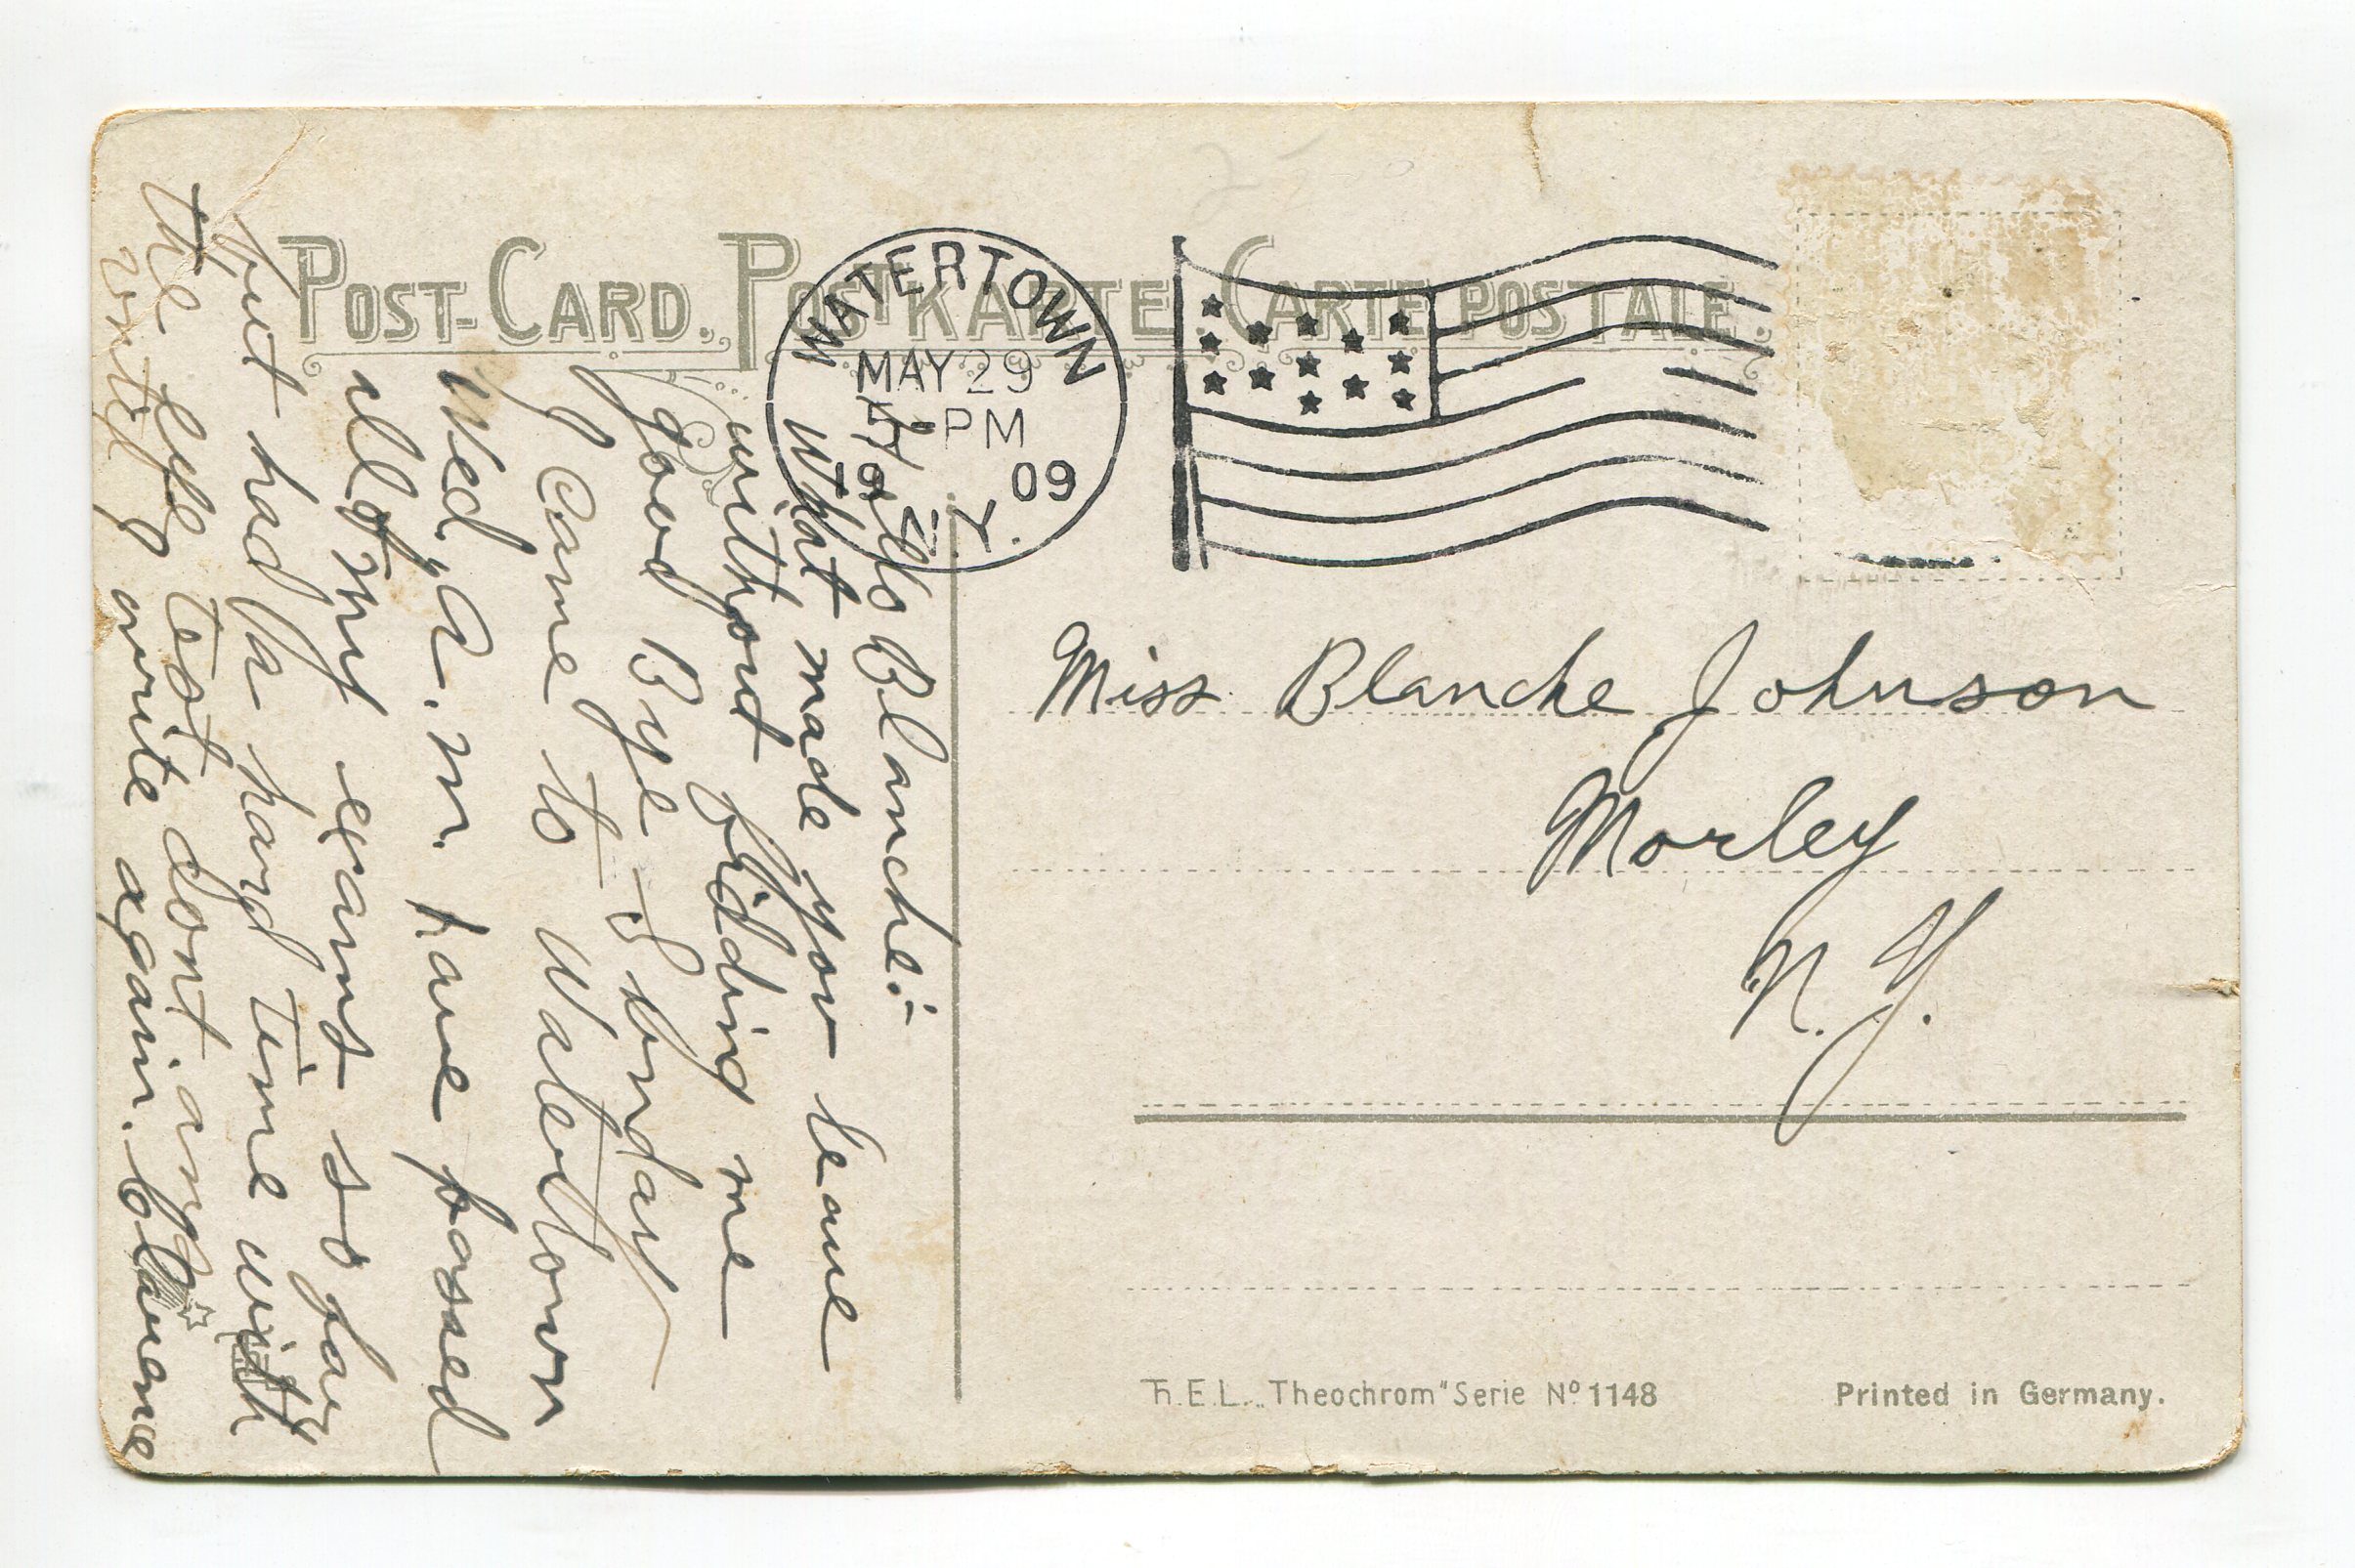 POST-CARD. POSTKARTE CARTE POSTALE.
WATERTOWN
MAY 29
PM
09
N.Y.
Hello Blanche:-
What made you leave
without bidding me
good Bye Sunday
I came to Watertown
Wed, a.m. have passed
all of my exams so far
but had a hard time with
the eye test dont
write again. Clarence
Miss Blanche Johnson
Morley
N.Y.
Th.E.L. „Theochrom" Serie Nº 1148
Printed in Germany.